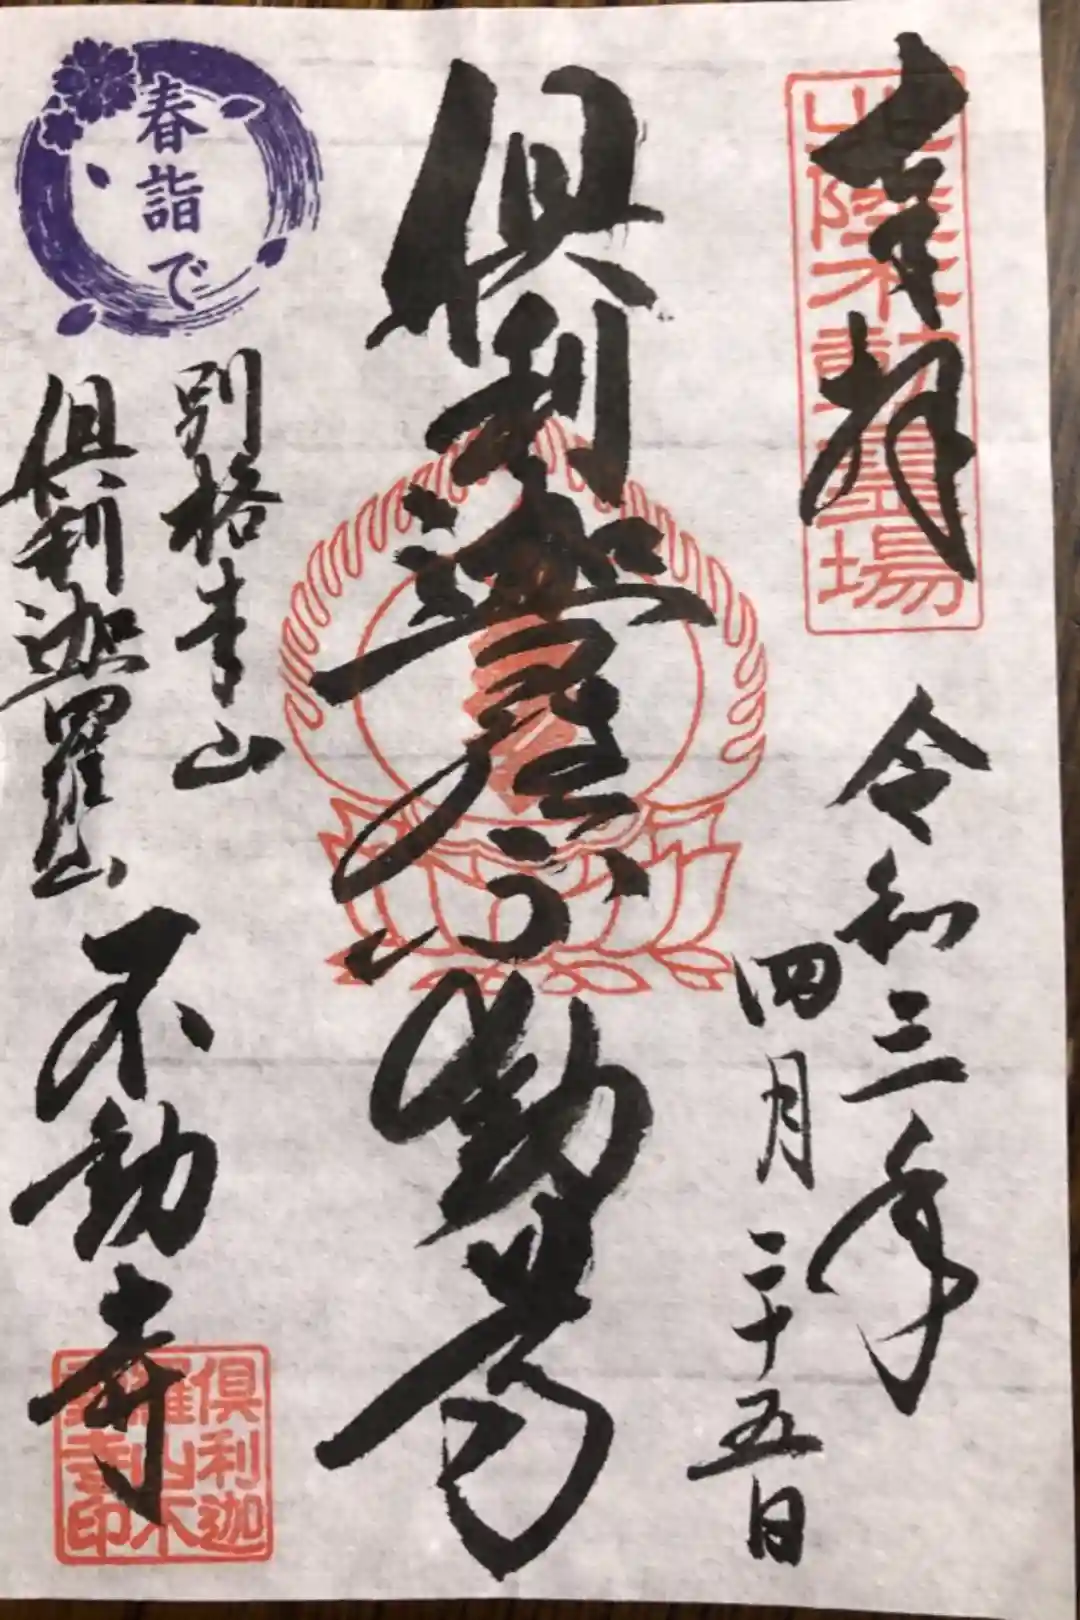 奉拝
北陸不動霊場
令和三年
四月二十五日
俱利迦羅不動尊
春詣で
別格本山
俱利迦羅山
不動寺
俱利迦
羅山不
動寺印